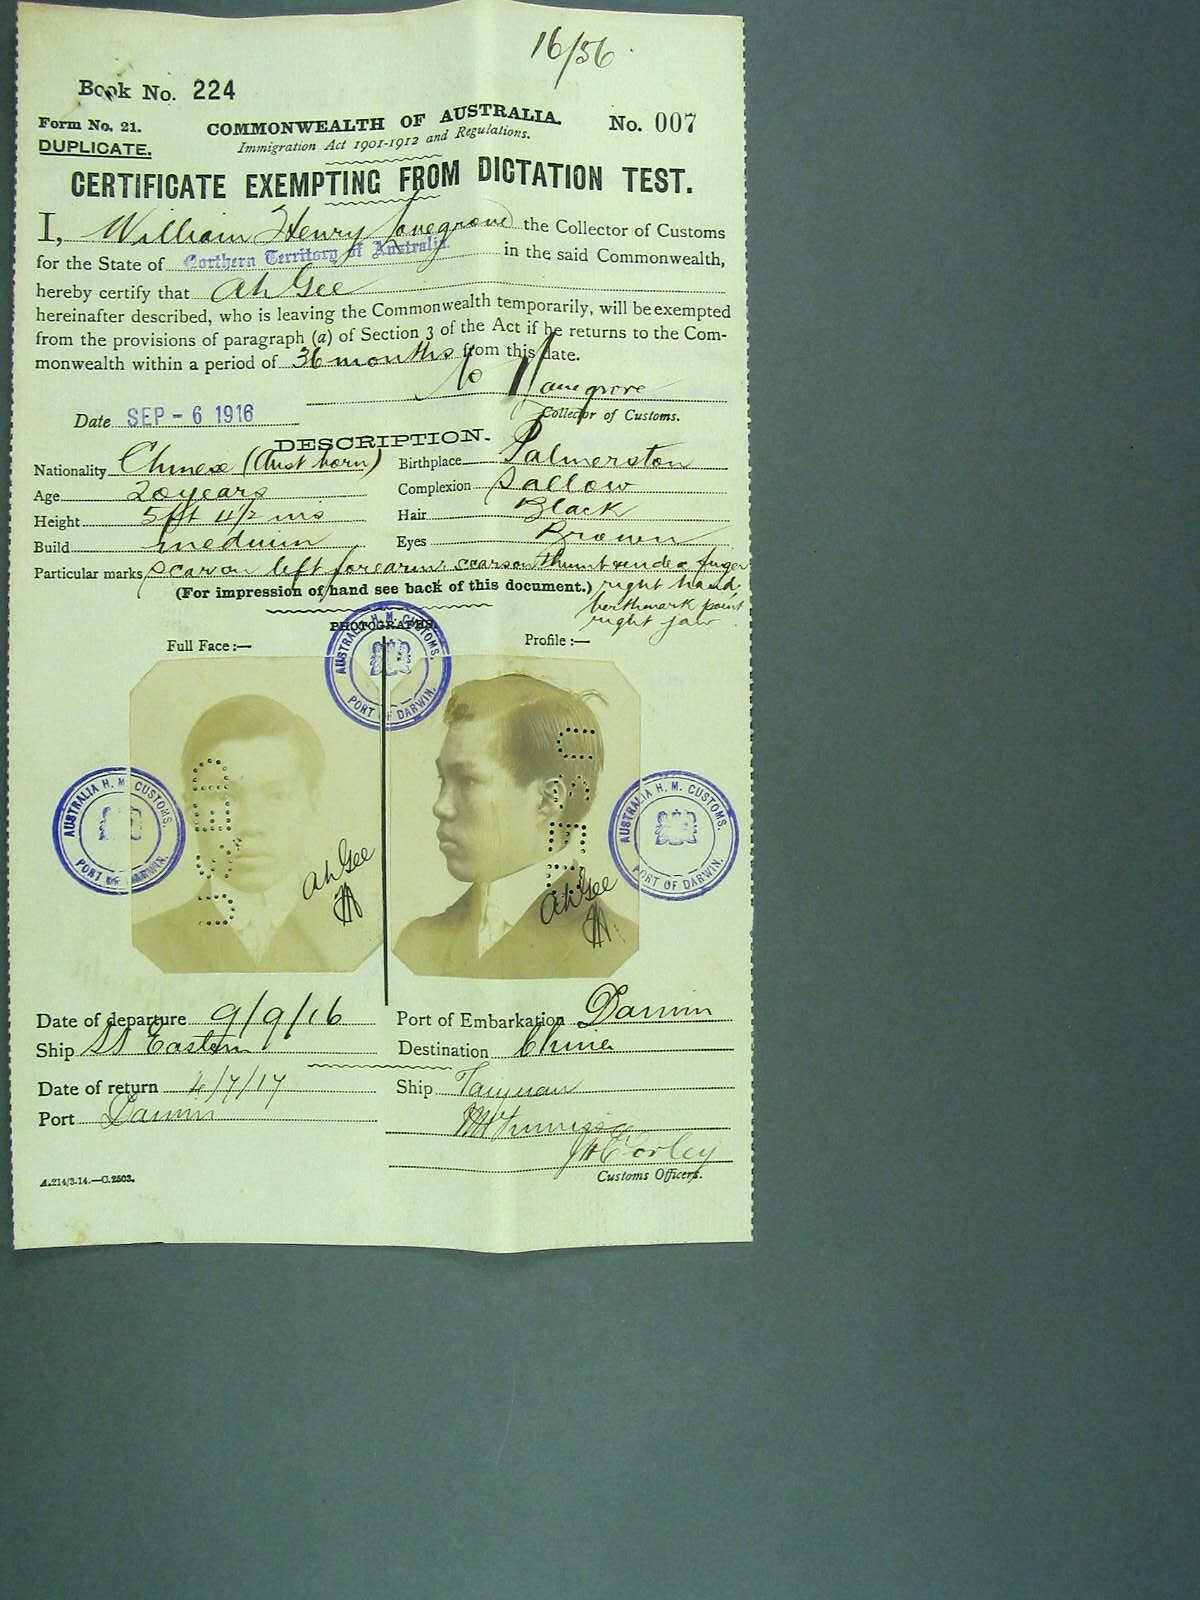 16/56
Book No. 224
Form No. 21.
COMMONWEALTH OF AUSTRALIA.
No. 007
DUPLICATE.
Immigration Act 1901-1912 and Regulations.
CERTIFICATE EXEMPTING FROM DICTATION TEST.
I, William Henry the Collector of Customs
for the State of Northern Territory of Australia. in the said Commonwealth,
hereby certify that Ah Gee
hereinafter described, who is leaving the Commonwealth temporarily, will be exempted
from the provisions of paragraph (a) of Section 3 of the Act if he returns to the Com-
monwealth within a period of 36 months from this date.
Collector of Customs.
Date SEP - 6 1916
DESCRIPTION.
Nationality Chinese (Aust born) Birthplace Palmerston
Age 20 years Complexion Sallow
Height 5 ft 4 1/2 ins Hair Black
Build medium Eyes Brown
Particular marks Scar on left forearm scars on thumb finger
(For impression of hand see back of this document.) right hand.
birthmark point
right jaw
PHOTOGRAPHS.
Full Face :— Profile :—
AUSTRALIA H. M. CUSTOMS. PORT OF DARWIN.
AUSTRALIA H. M. CUSTOMS. PORT OF DARWIN.
AUSTRALIA H. M. CUSTOMS. PORT OF DARWIN.
USED
USED
Ah Gee
Ah Gee
Date of departure 9/9/16 Port of Embarkation Darwin
Ship SS Eastern Destination China
Date of return 4/7/17 Ship Taiyuan
Port Darwin
Customs Officers.
A.214/3.14.—C.2503.